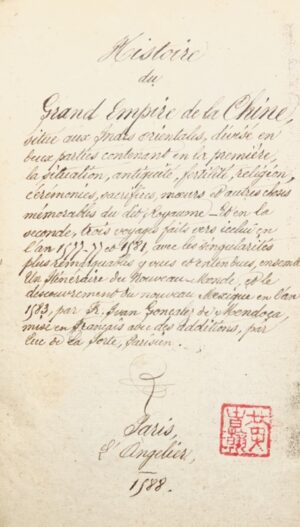 Histoire
du
Grand Empire de la Chine,
située aux Indes orientales, divisé en
deux parties contenant en la première,
la situation, antiquité, fertilité, religion,
cérémonies, sacrifices, mœurs et autres choses
mémorables du dit Royaume – Et en la
seconde, trois voyages faits vers icelui en
l'an 1577-77 et 1581, avec les singularités
plus remarquables y vues et entendues, ensemble
Un Itinéraire du Nouveau-Monde, et le
découvrement du nouveau Mexique en l'an
1583, par R. Ivan Gonzalez de Mendoça,
mise en Français avec des additions, par
Luc de la Porte, Parisien.
Paris,
L'Angelier,
1588.